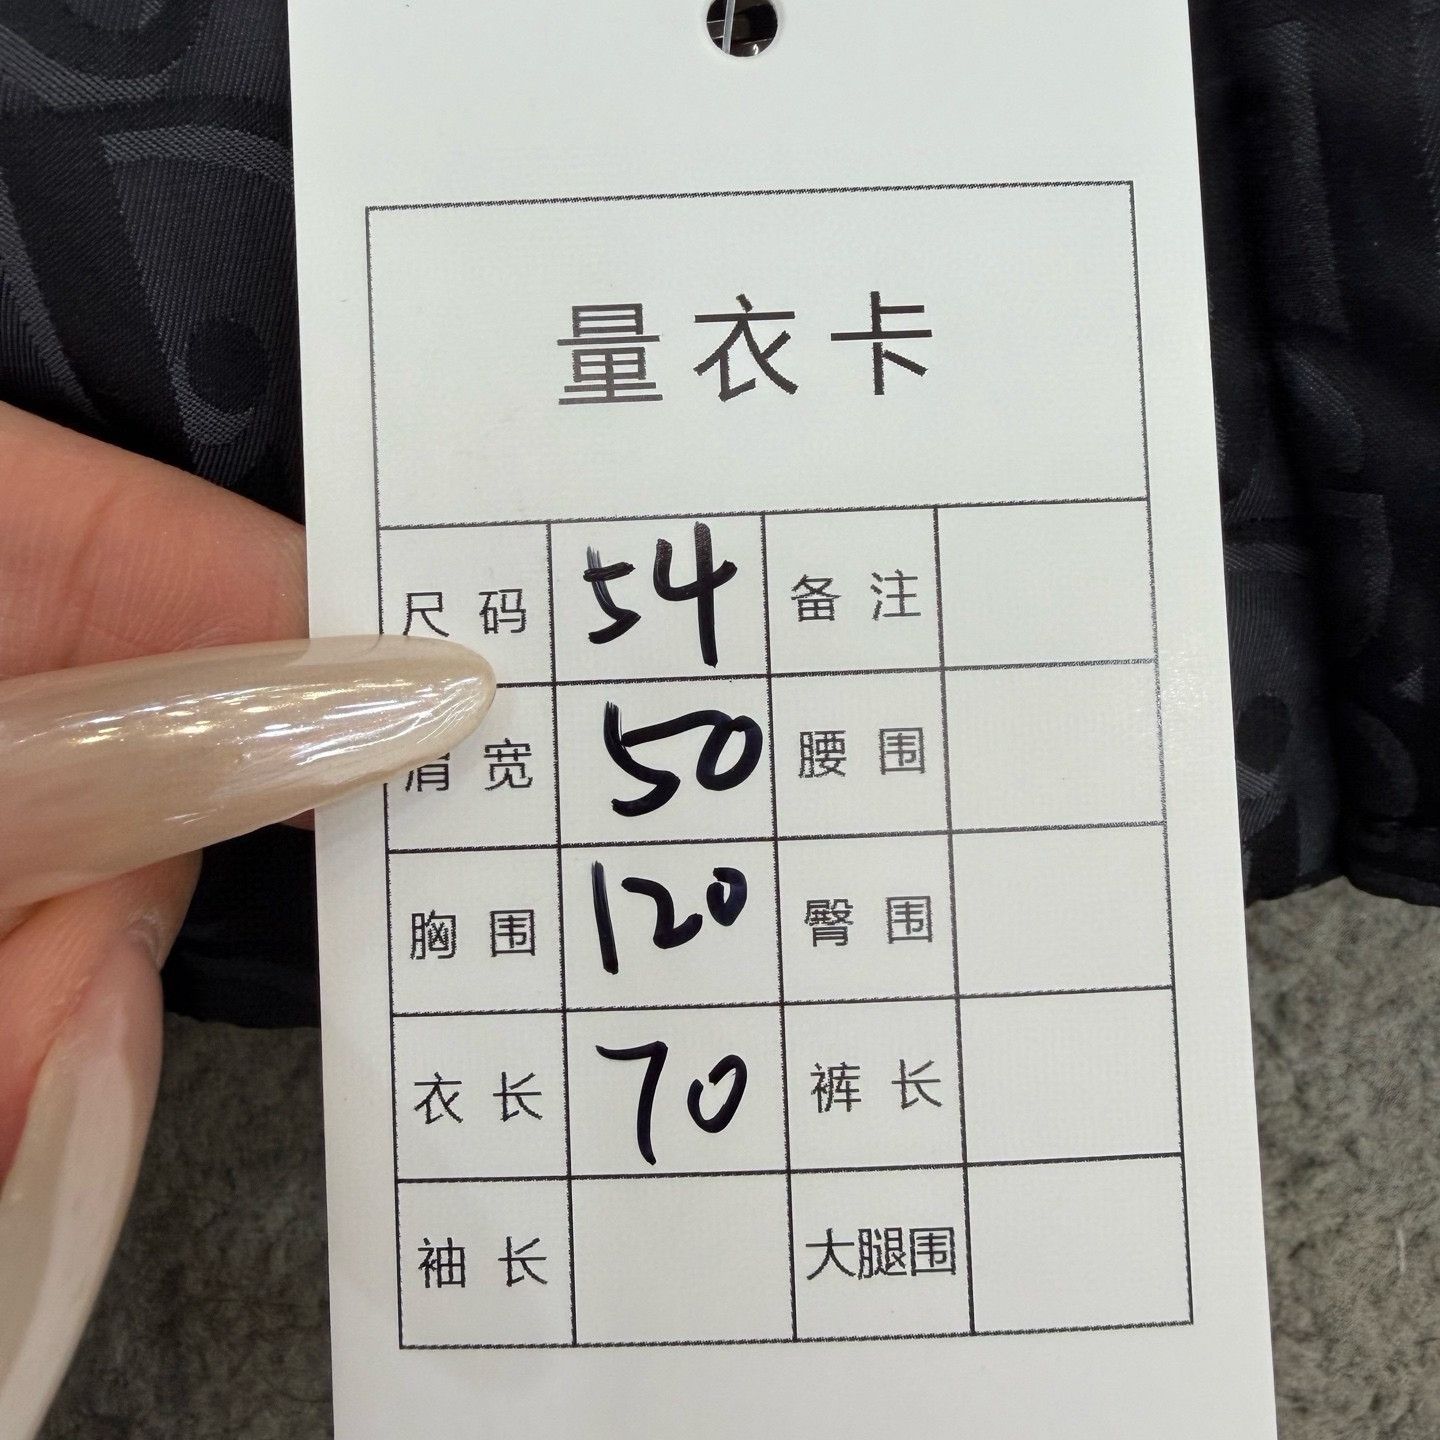 量衣卡
尺码 54 备注
肩宽 50 腰围
胸围 120 臀围
衣长 70 裤长
袖长 大腿围